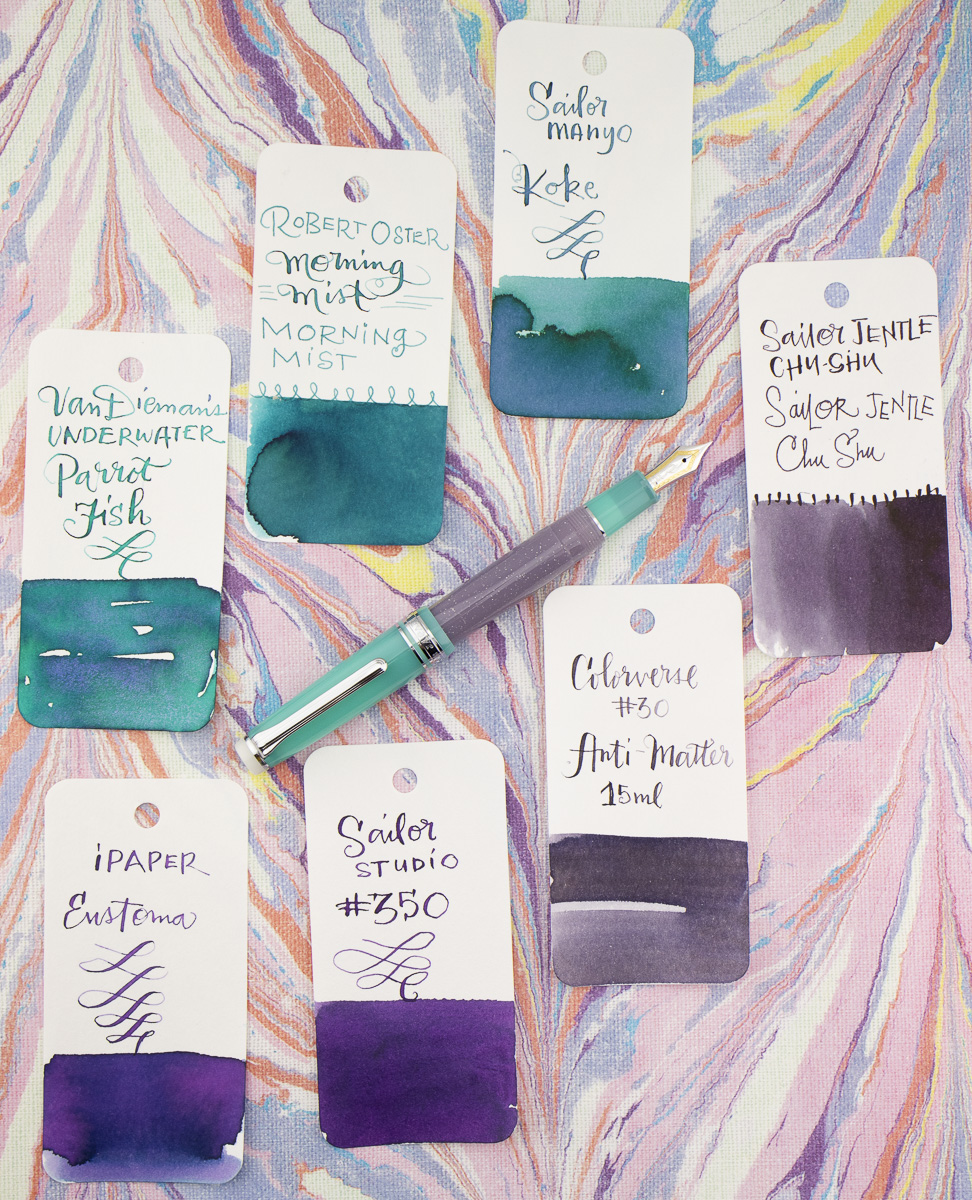 Sailor
MANYO
Koke
ROBERT OSTER
Morning
Mist
MORNING
MIST
Sailor JENTLE
CHU-SHU
SAILOR JENTLE
Chu Shu
Van Dieman's
UNDERWATER
Parrot
Fish
Colorverse
#30
Anti-Matter
15ml
iPAPER
Eustoma
Sailor
STUDIO
#350